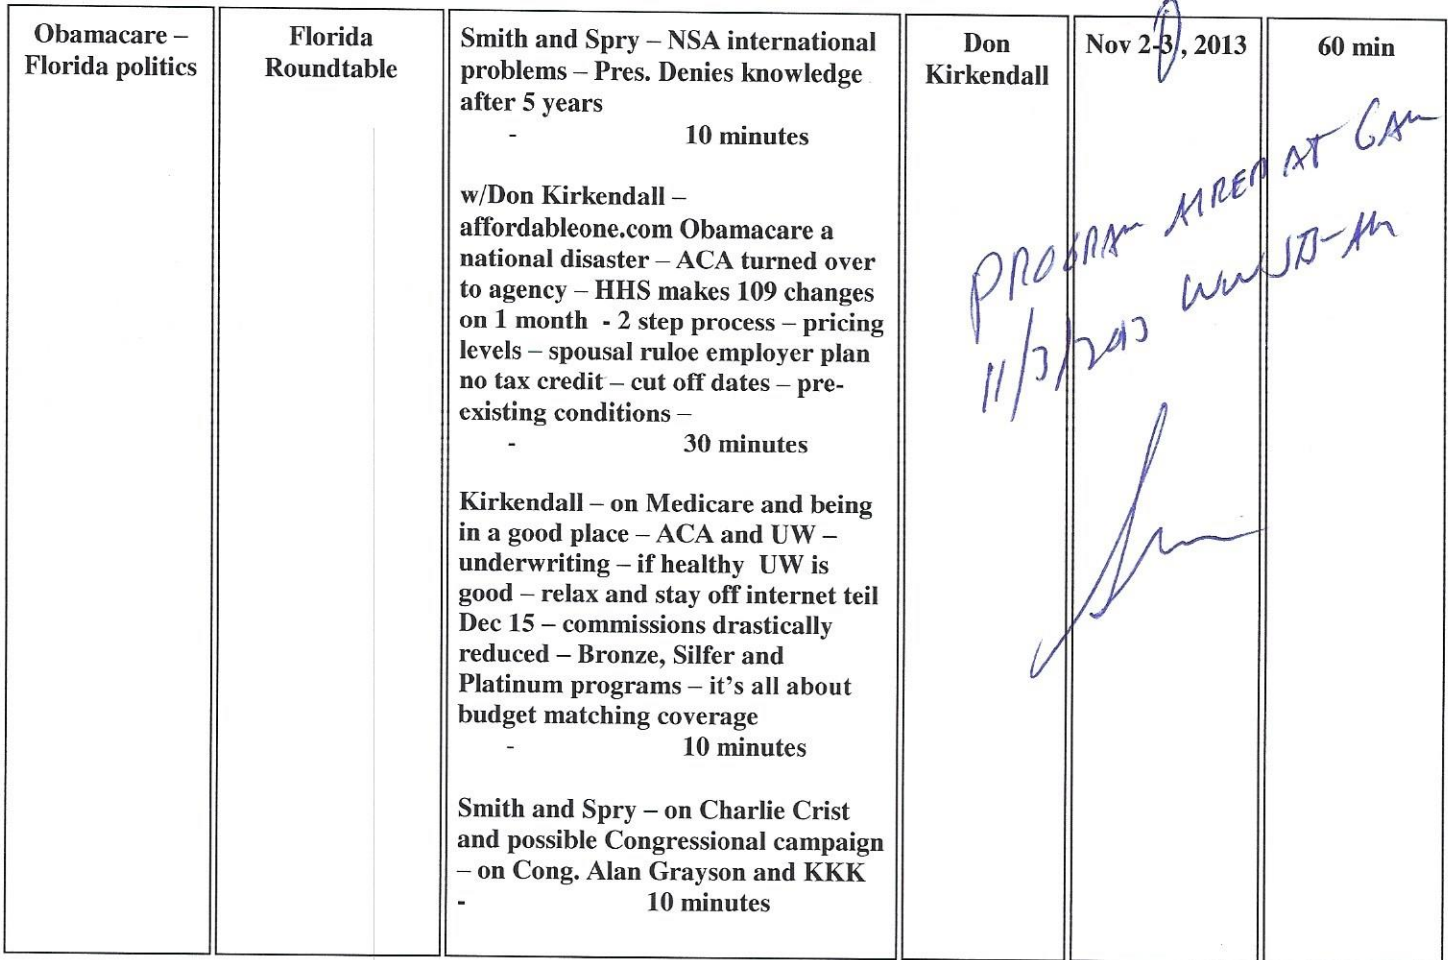 Obamacare –
Florida politics
Florida
Roundtable
Smith and Spry – NSA international
problems – Pres. Denies knowledge
after 5 years
- 10 minutes
w/Don Kirkendall –
affordableone.com Obamacare a
national disaster – ACA turned over
to agency – HHS makes 109 changes
on 1 month - 2 step process – pricing
levels – spousal ruloe employer plan
no tax credit – cut off dates – pre-
existing conditions –
- 30 minutes
Kirkendall – on Medicare and being
in a good place – ACA and UW –
underwriting – if healthy UW is
good – relax and stay off internet teil
Dec 15 – commissions drastically
reduced – Bronze, Silfer and
Platinum programs – it's all about
budget matching coverage
- 10 minutes
Smith and Spry – on Charlie Crist
and possible Congressional campaign
– on Cong. Alan Grayson and KKK
- 10 minutes
Don
Kirkendall
Nov 2-3, 2013
60 min
PROGRAM AIRED AT 6AM
11/3/2013 WWJB-AM